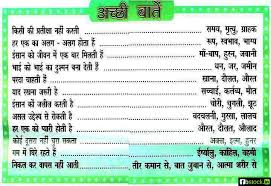 अच्छी बातें
किसी की प्रतीक्षा नहीं करती ........ समय, मृत्यु, ग्राहक
हर एक का अलग - अलग होता है ........ रूप, स्वभाव, भाग्य
इंसान को जीवन में एक बार मिलती है ........ माँ-बाप, हुस्न, जवानी
भाई को भाई का दुश्मन बना देती है ........ धन, जर, जमीन
परदा चाहती है ........ खाना, दौलत, औरत
याद रखना जरूरी है ........ सच्चाई, कर्तव्य, मौत
इंसान को जलील करती है ........ चोरी, चुगली, झूठ
असल उद्देश्य से रोकती है ........ बदचलनी, गुस्सा, लालच
हर एक को प्यारी होती है ........ औरत, दौलत, औलाद
कोई दूसरा नहीं चुरा सकता ........ अक्ल, इल्म, हुनर
गम में घिरे रहते है ........ ईर्ष्यालु, काहिल, वहमी
निकल कर वापस नहीं आती ........ तीर कमान से, बात जुबान से, आत्मा शरीर से
fbstock.in